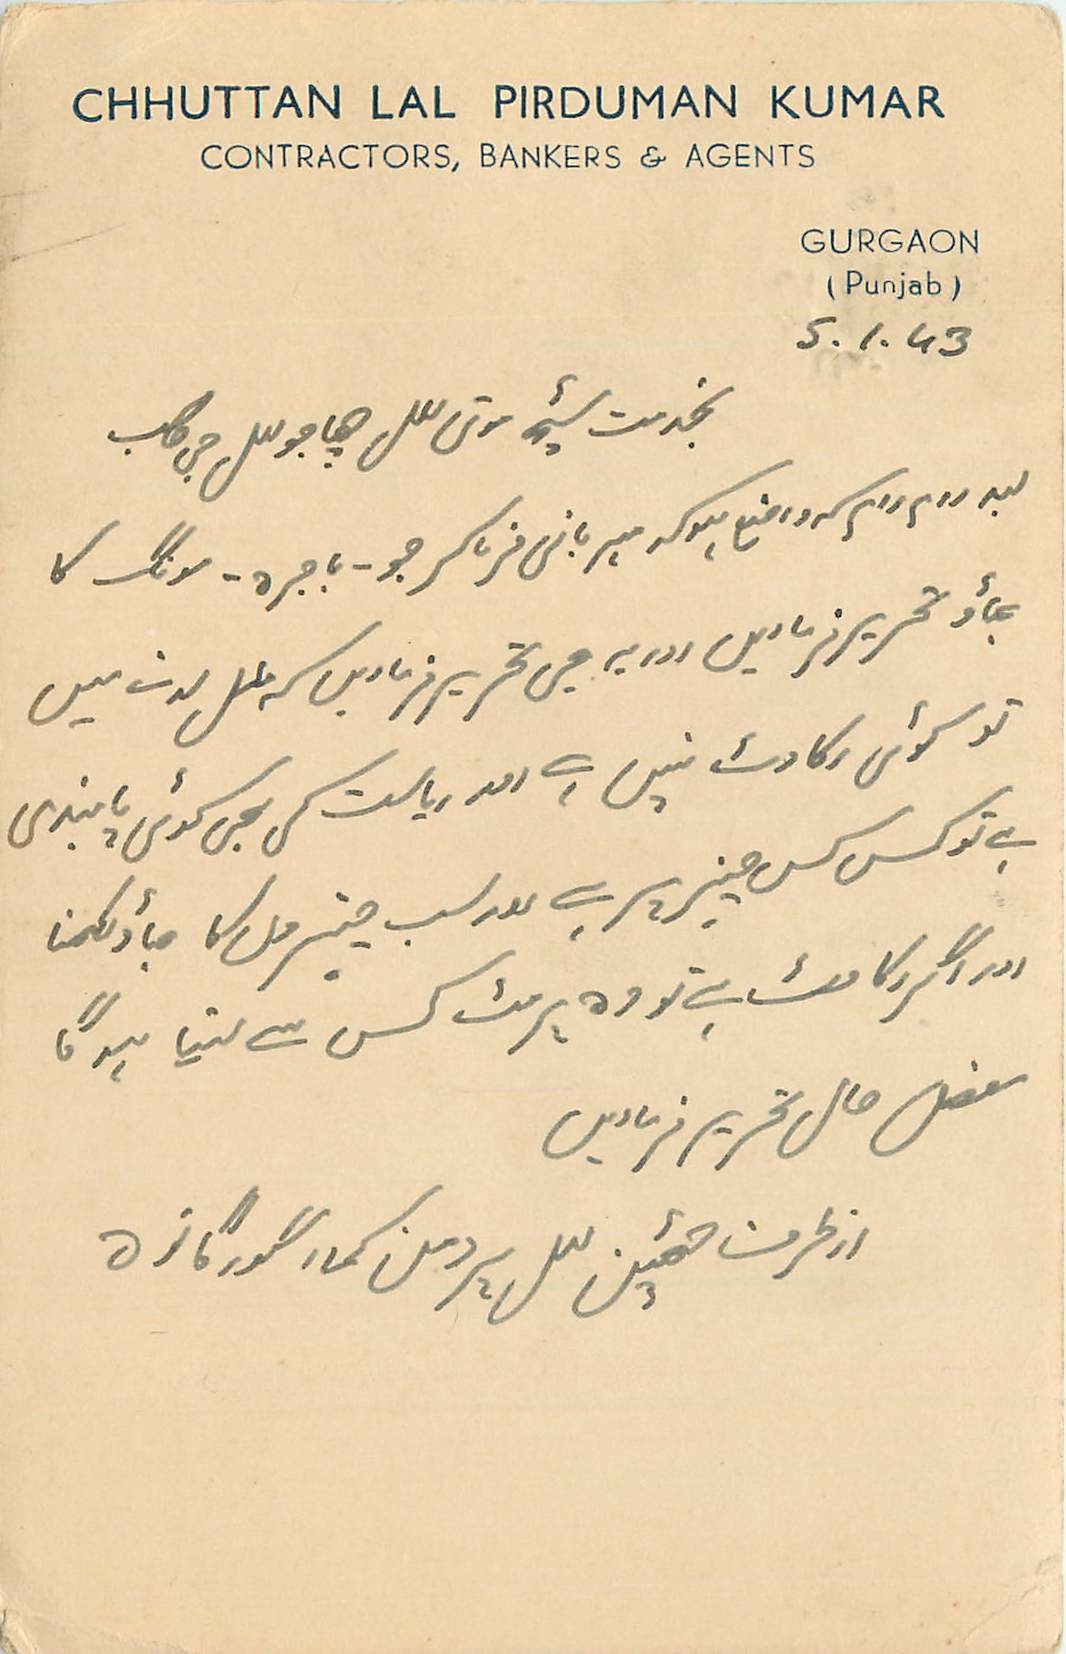 CHHUTTAN LAL PIRDUMAN KUMAR
CONTRACTORS, BANKERS & AGENTS
GURGAON
(Punjab)
5.1.43
بخدمت سیٹھ موتی لعل چھاجو لعل جی صاحب
بعد رام رام کہ واضع ہوکہ مہربانی فرماکر جو - باجرہ - مونگ کا
بھاؤ تحریر فرماویں اور یہ بھی تحریر فرماویں کہ مال لدنے میں
تو کوئی رکاوٹ نہیں ہے اور ریاست کی بھی کوئی پابندی
ہے تو کس کس چیز پر ہے اور سب چیزوں کا بھاؤ لکھنا
اور اگر رکاوٹ ہے تو وہ پرمٹ کس سے لینا ہوگا
مفصل حال تحریر فرماویں
از طرف چھٹن لعل پردمن کمار گورگانوہ